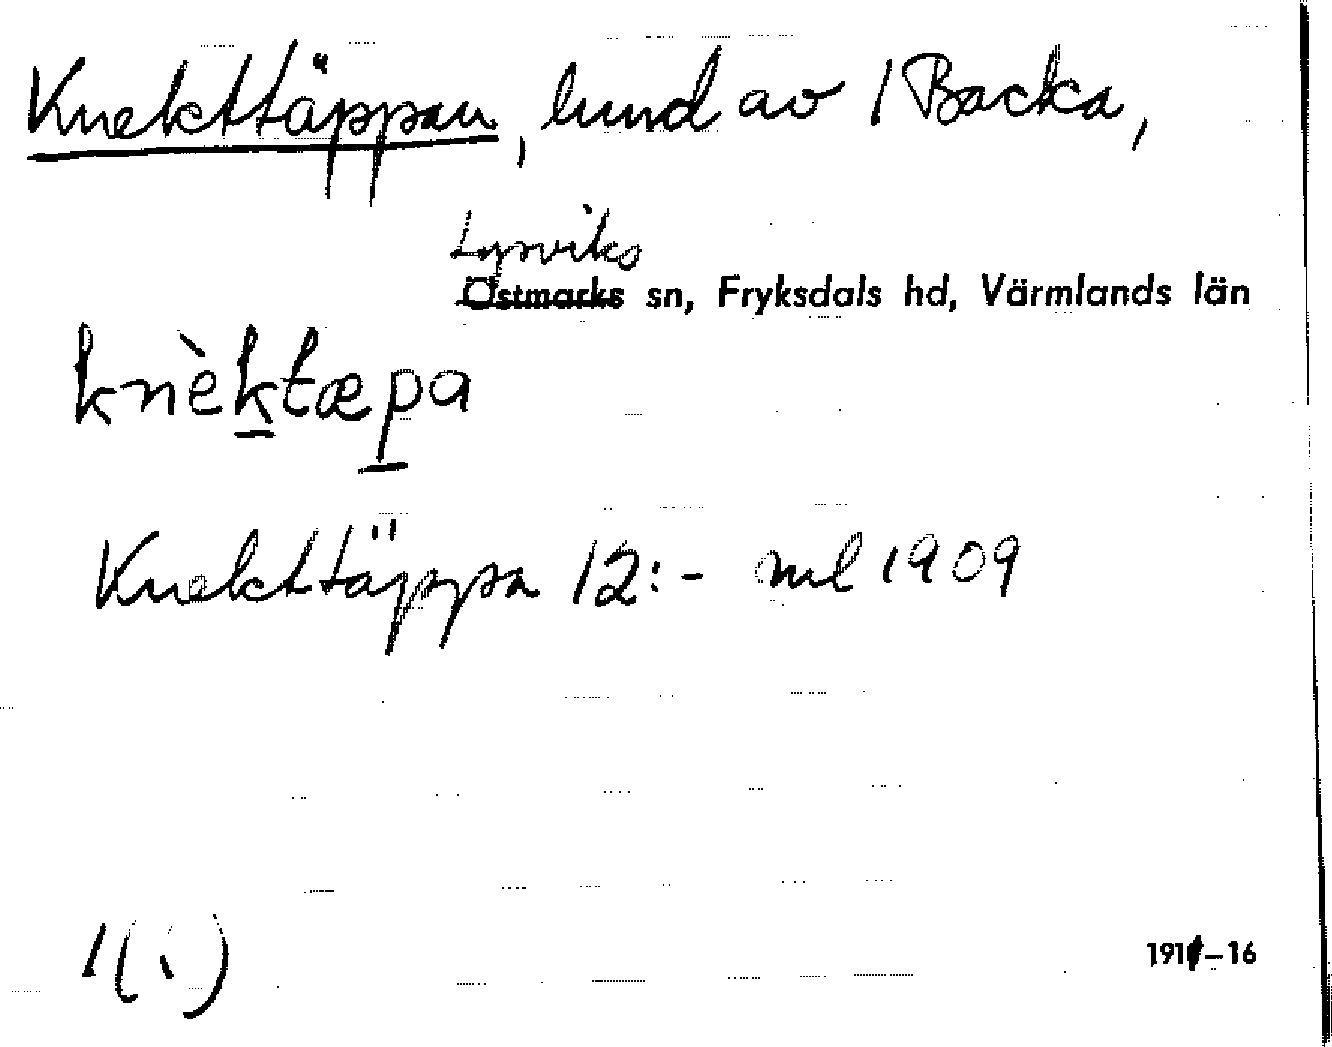 Knekttäppan, lund av 1 Backa,
Lysviks
Östmarks sn, Fryksdals hd, Värmlands län
knèktæpa
Knekttäppa 12:- ml 1909
1(1)
-16